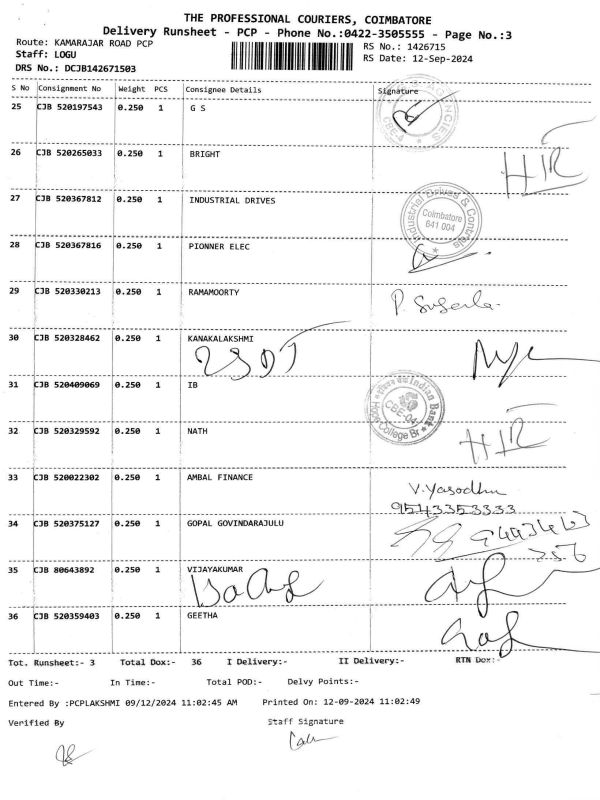 THE PROFESSIONAL COURIERS, COIMBATORE
Delivery Runsheet - PCP - Phone No.:0422-3505555 - Page No.:3
Route: KAMARAJAR ROAD PCP RS No.: 1426715
Staff: LOGU RS Date: 12-Sep-2024
DRS No.: DCJB142671503
S No Consignment No Weight PCS Consignee Details Signature
25 CJB 520197543 0.250 1 G S
AGENCIES CBE-4
26 CJB 520265033 0.250 1 BRIGHT
27 CJB 520367812 0.250 1 INDUSTRIAL DRIVES
Industrial Drives & Controls
Coimbatore
641 004
28 CJB 520367816 0.250 1 PIONNER ELEC
29 CJB 520330213 0.250 1 RAMAMOORTY P. Suseela
30 CJB 520328462 0.250 1 KANAKALAKSHMI
31 CJB 520409069 0.250 1 IB
Indian Bank
CBE-04
College Br
32 CJB 520329592 0.250 1 NATH
33 CJB 520022302 0.250 1 AMBAL FINANCE V. Yasodha
9543353333
34 CJB 520375127 0.250 1 GOPAL GOVINDARAJULU
35 CJB 80643892 0.250 1 VIJAYAKUMAR
36 CJB 520359403 0.250 1 GEETHA
Tot. Runsheet:- 3 Total Dox:- 36 I Delivery:- II Delivery:- RTN Dox:-
Out Time:- In Time:- Total POD:- Delvy Points:-
Entered By :PCPLAKSHMI 09/12/2024 11:02:45 AM Printed On: 12-09-2024 11:02:49
Verified By Staff Signature